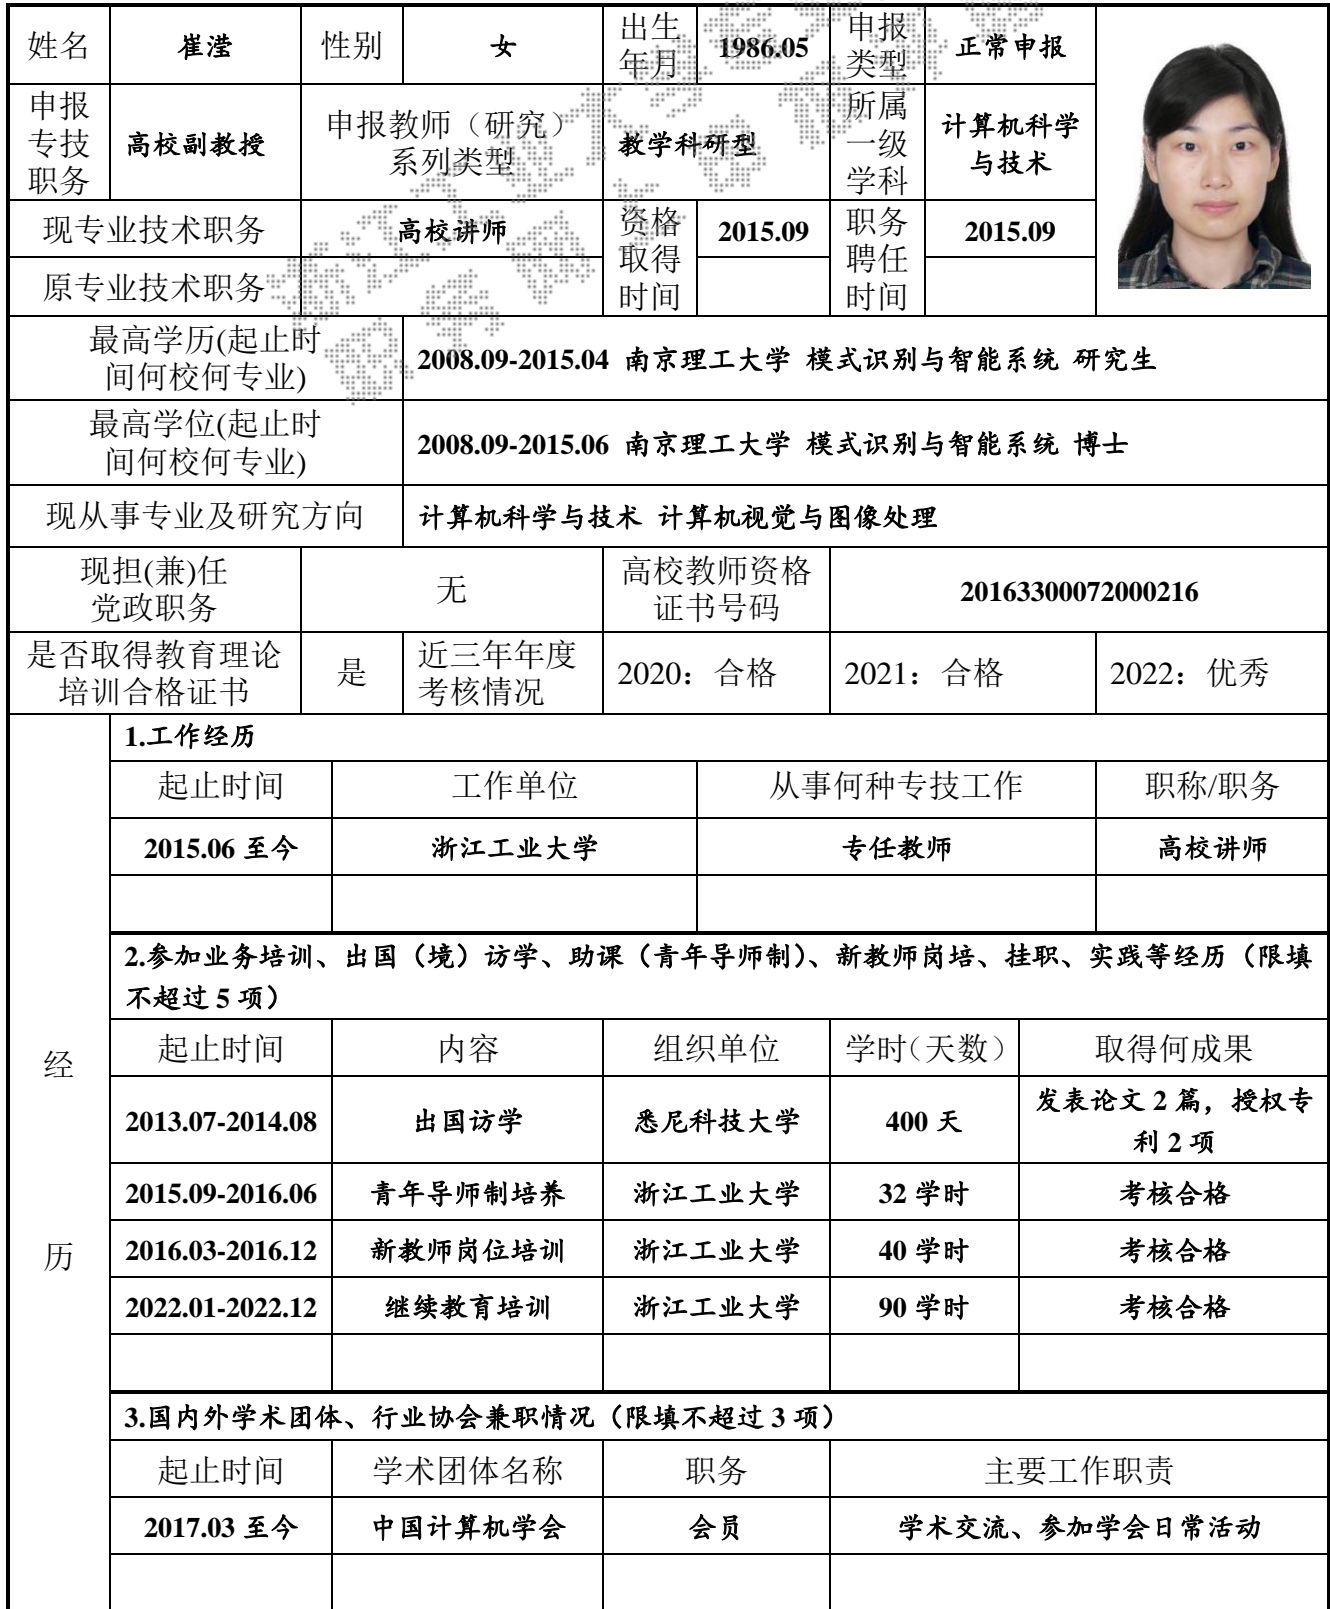 姓名 崔滢 性别 女 出生年月 1986.05 申报类型 正常申报
申报专技职务 高校副教授 申报教师（研究）系列类型 教学科研型 所属一级学科 计算机科学与技术
现专业技术职务 高校讲师 资格取得时间 2015.09 职务聘任时间 2015.09
原专业技术职务
最高学历(起止时间何校何专业) 2008.09-2015.04 南京理工大学 模式识别与智能系统 研究生
最高学位(起止时间何校何专业) 2008.09-2015.06 南京理工大学 模式识别与智能系统 博士
现从事专业及研究方向 计算机科学与技术 计算机视觉与图像处理
现担(兼)任党政职务 无 高校教师资格证书号码 20163300072000216
是否取得教育理论培训合格证书 是 近三年年度考核情况 2020：合格 2021：合格 2022：优秀
经历
1.工作经历
起止时间 工作单位 从事何种专技工作 职称/职务
2015.06 至今 浙江工业大学 专任教师 高校讲师
2.参加业务培训、出国（境）访学、助课（青年导师制）、新教师岗培、挂职、实践等经历（限填
不超过 5 项）
起止时间 内容 组织单位 学时（天数） 取得何成果
2013.07-2014.08 出国访学 悉尼科技大学 400 天 发表论文 2 篇，授权专利 2 项
2015.09-2016.06 青年导师制培养 浙江工业大学 32 学时 考核合格
2016.03-2016.12 新教师岗位培训 浙江工业大学 40 学时 考核合格
2022.01-2022.12 继续教育培训 浙江工业大学 90 学时 考核合格
3.国内外学术团体、行业协会兼职情况（限填不超过 3 项）
起止时间 学术团体名称 职务 主要工作职责
2017.03 至今 中国计算机学会 会员 学术交流、参加学会日常活动